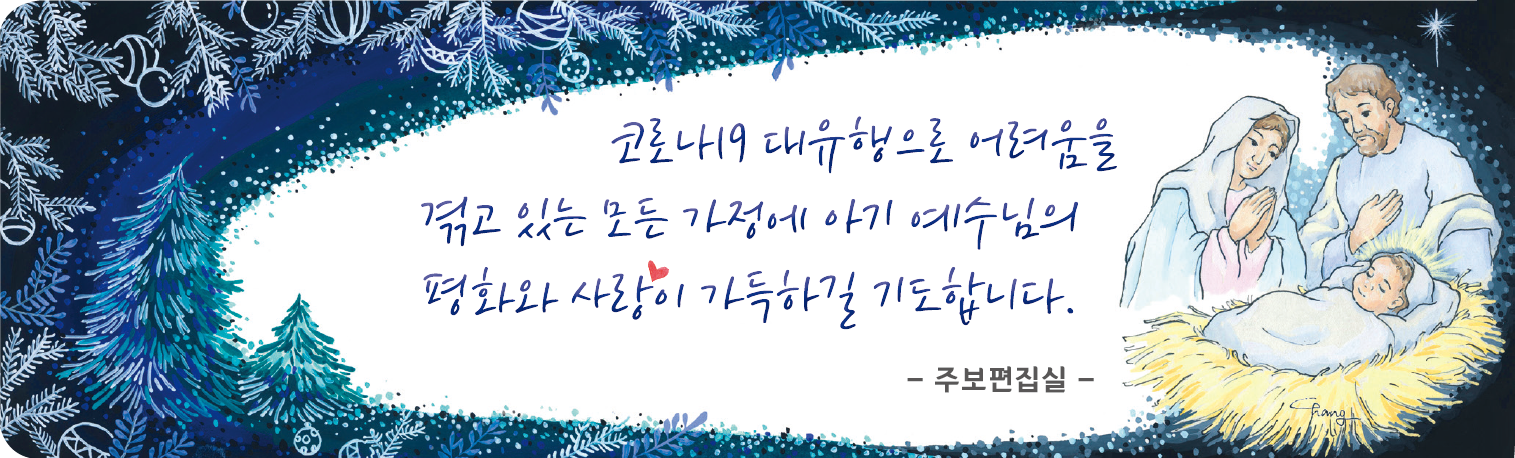 코로나19 대유행으로 어려움을
겪고 있는 모든 가정에 아기 예수님의
평화와 사랑이 가득하길 기도합니다.
- 주보편집실 -
Chang